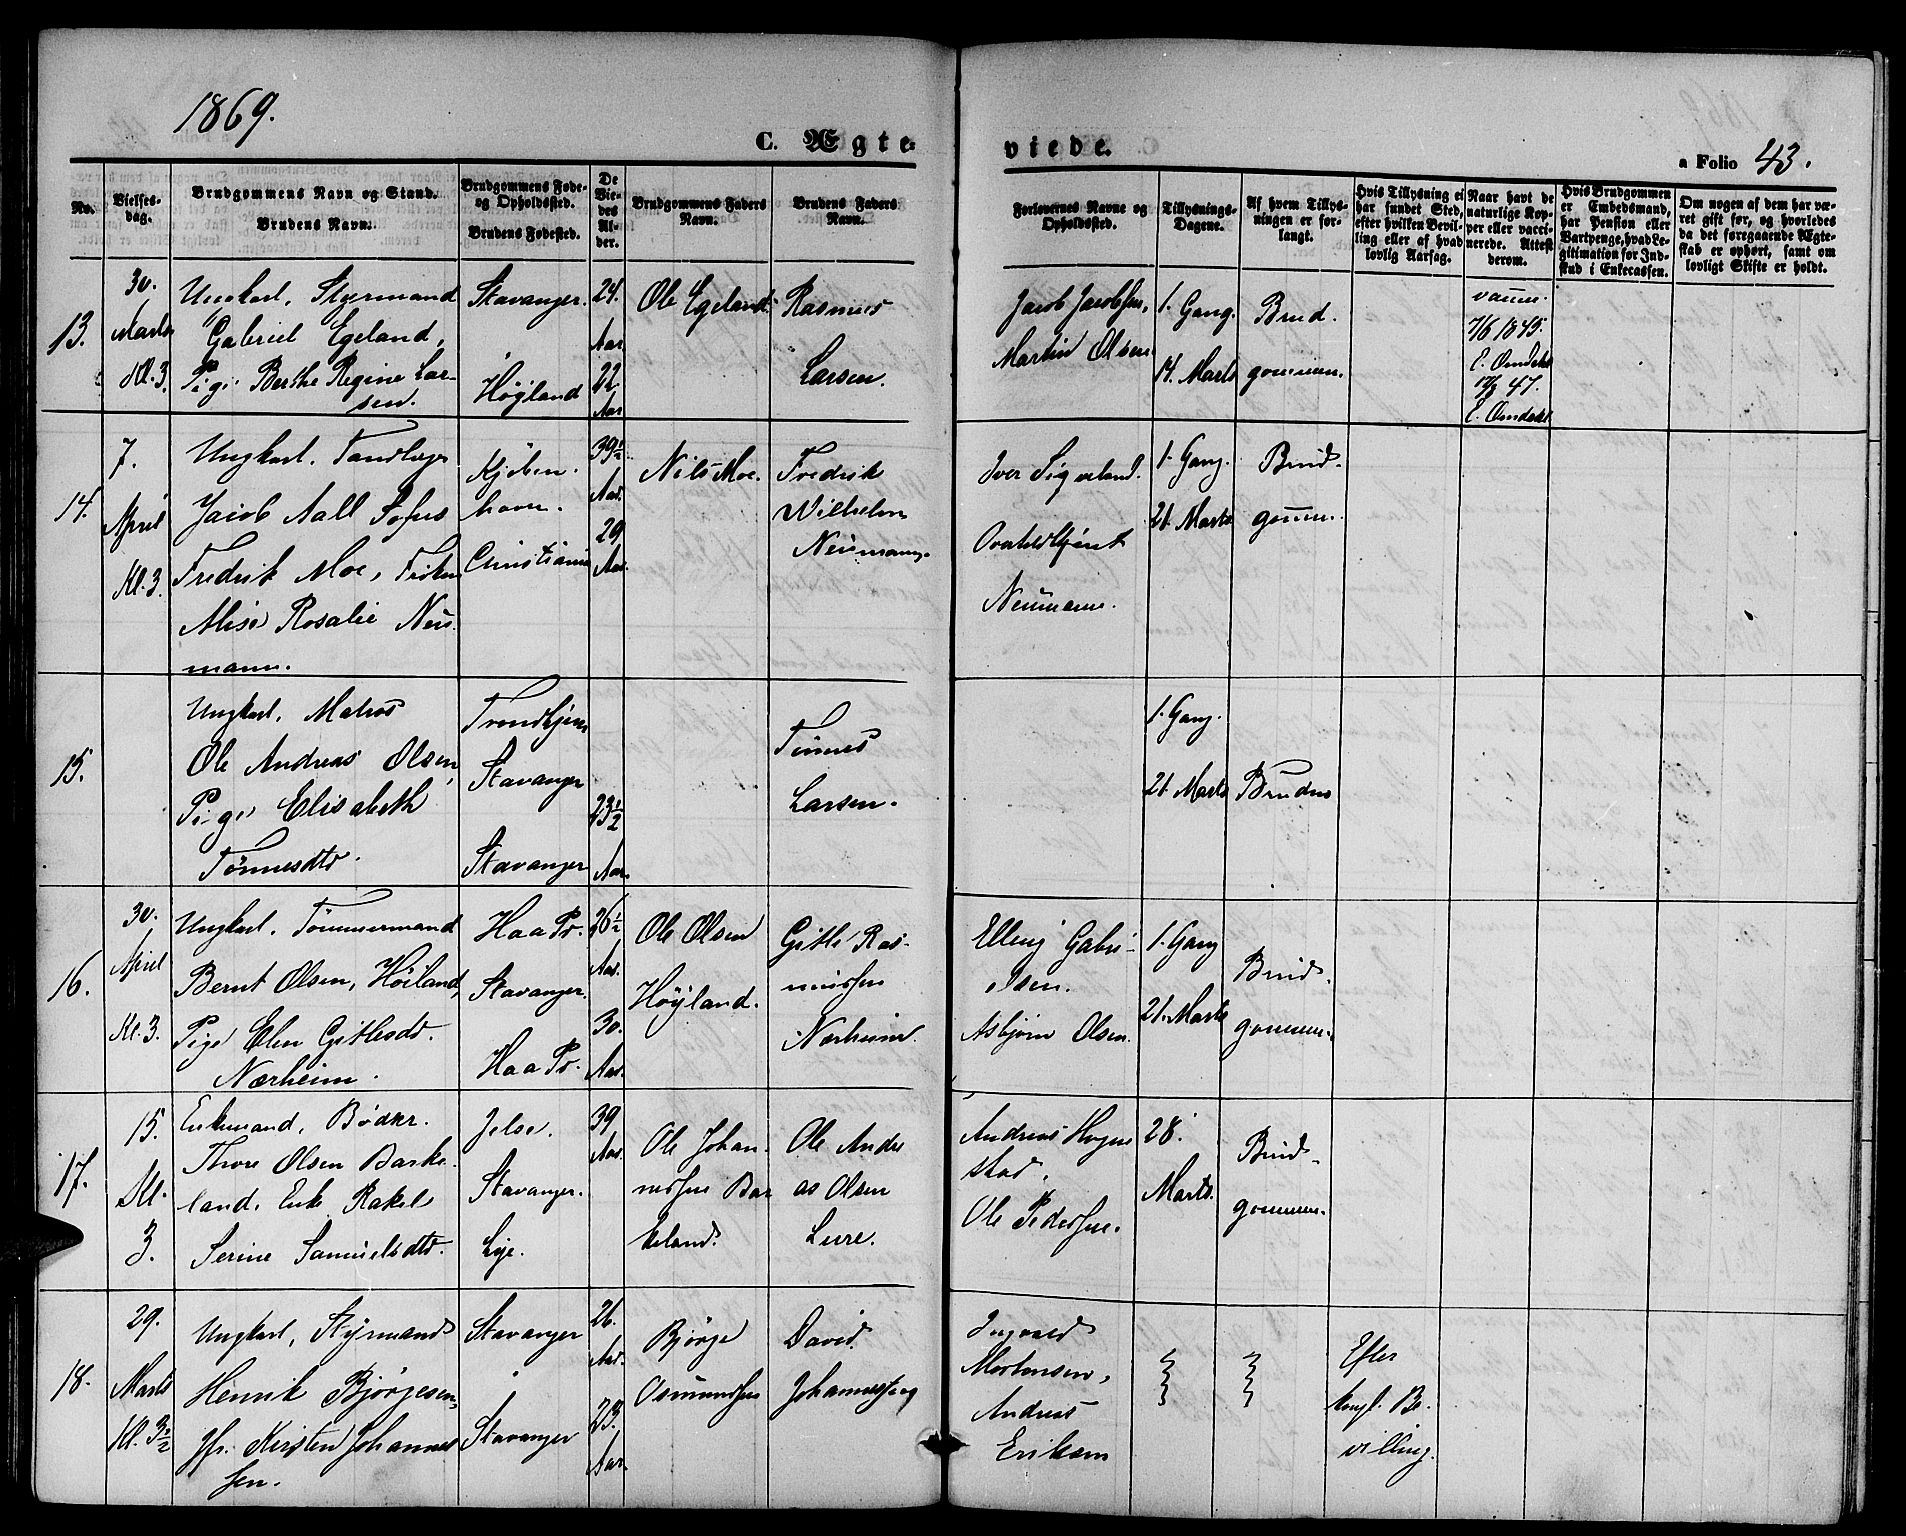 1869.
C. Ægte-
viede.
a Folio 43.
No.
Vielses-
dag.
Brudgommens Navn og Stand.
Brudens Navn.
Brudgommens Føde-
og Opholdssted.
Brudens Fødested.
De
Vie-
des
Al-
der.
Brudgommens Faders
Navn.
Brudens Faders
Navn.
Forlovernes Navne og
Opholdssted.
Tillysnings-
Dagene.
Af hvem Tillys-
ningen er for-
langt.
Hvis Tillysning ei
har fundet Sted,
efter hvilken Bevil-
ling eller af hvad
lovlig Aarsag.
Naar havt de
naturlige Kop-
per eller vacci-
nerede. Attest
derom.
Hvis Brudgommen
er Embedsmand,
har Pension eller
Vartpenge, hvad Le-
gitimation for Ind-
skud i Enkecassen.
Om nogen af dem har væ-
ret gift før, og hvorledes
da det foregaaende Ægte-
skab er ophørt, samt om
lovligt Skifte er holdt.
13.
30.
Marts
Kl. 3.
Ungkarl, Styrmand
Gabriel Egeland,
Pige Berthe Regine Lar-
sen.
Stavanger.
Høyland
24.
Aar
22
Aar
Ole Egeland
Rasmus
Larsen.
Jacob Jacobsen,
Martin Olsen
1. Gang.
14. Marts
Brud-
gommen.
vaccin.
7/6 1845.
E. Omdahl
47.
E. Omdahl
14.
7.
April
Kl. 3.
Ungkarl, Tandlæge
Jacob Aall Sofus
Fredrik Moe, Frøken
Alise Rosalie Neu-
mann.
Kjøben-
havn.
Christiania
39½
Aar.
29
Aar.
Nils Moe.
Fredrik
Wilhelm
Neumann.
Iver Sigvarland.
Neumann.
1. Gang.
21. Marts
Brud-
gommen.
15.
Ungkarl, Matros
Ole Andreas Olsen,
Pige Elisabeth
Tønnesdtr.
Trondhjem
Stavanger
Stavanger
23½
Aar.
Tønnes
Larsen.
1. Gang.
21. Marts
Bruden
16.
30.
April
Kl. 3.
Ungkarl, Tømmermand
Bernt Olsen, Høiland,
Pige Elen Gitlesdtr.
Nærheim.
Haa Pr.
Stavanger.
Haa Pr.
26½
Aar.
30.
Aar.
Ole Olsen
Høyland.
Gitle Ras-
mussen
Nærheim.
Elling Gabri-
elsen.
Asbjørn Olsen.
1. Gang
21. Marts
Brud-
gommen.
17.
15.
Kl.
3.
Enkemand, Bødker.
Thore Olsen Barke-
land, Enke Rakel
Serine Samuelsdtr.
Jelse.
Stavanger.
Lye.
39
Aar.
Ole Johan-
nessen Bar
keland.
Ole Andre
as Olsen
Lure.
Andreas Hogne
stad,
Ole Pedersen.
28.
Marts.
Brud-
gommen.
18.
29.
Marts
Kl. 3½
Ungkarl, Styrmand
Henrik Bjørgesen,
Jfr. Kirsten Johannes
sen.
Stavanger
Stavanger
26.
Aar.
23.
Aar.
Bjørge
Osmundsen
David
Johannessen
Ingvald
Mortensen,
Andreas
Eriksen
Efter
kongl. Be-
villing.